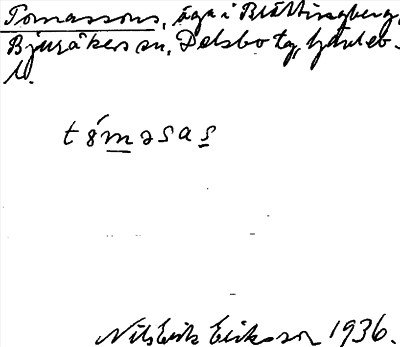 Tomassons, äga i Blåttingberg,
Bjuråkers sn, Delsbo tg, Gävleb.
l.
tómasas
Nils Erik Eriksson 1936.